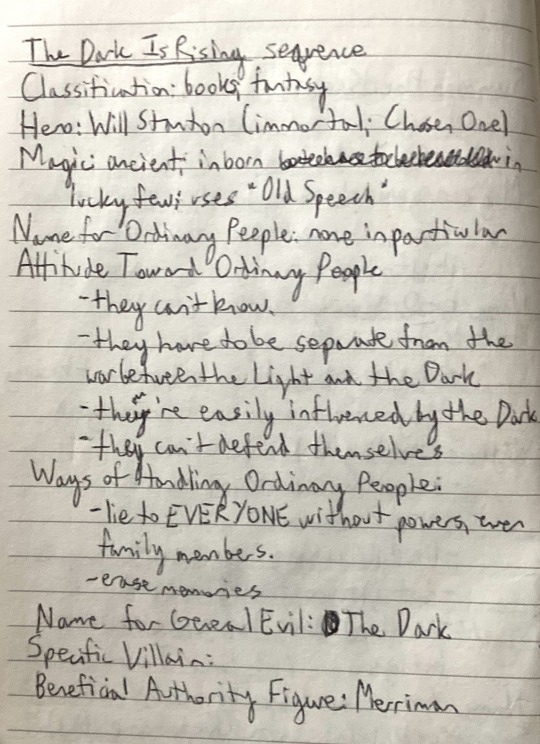 The Dark Is Rising sequence
Classification: books, fantasy
Hero: Will Stanton (immortal; Chosen One)
Magic: ancient; inborn in
lucky few; uses "Old Speech"
Name for Ordinary People: none in particular
Attitude Toward Ordinary People
-they can't know.
-they have to be separate from the
war between the Light and the Dark
-they're easily influenced by the Dark
-they can't defend themselves
Ways of Handling Ordinary People:
-lie to EVERYONE without powers, even
family members.
-erase memories
Name for General Evil: The Dark
Specific Villain:
Beneficial Authority Figure: Merriman